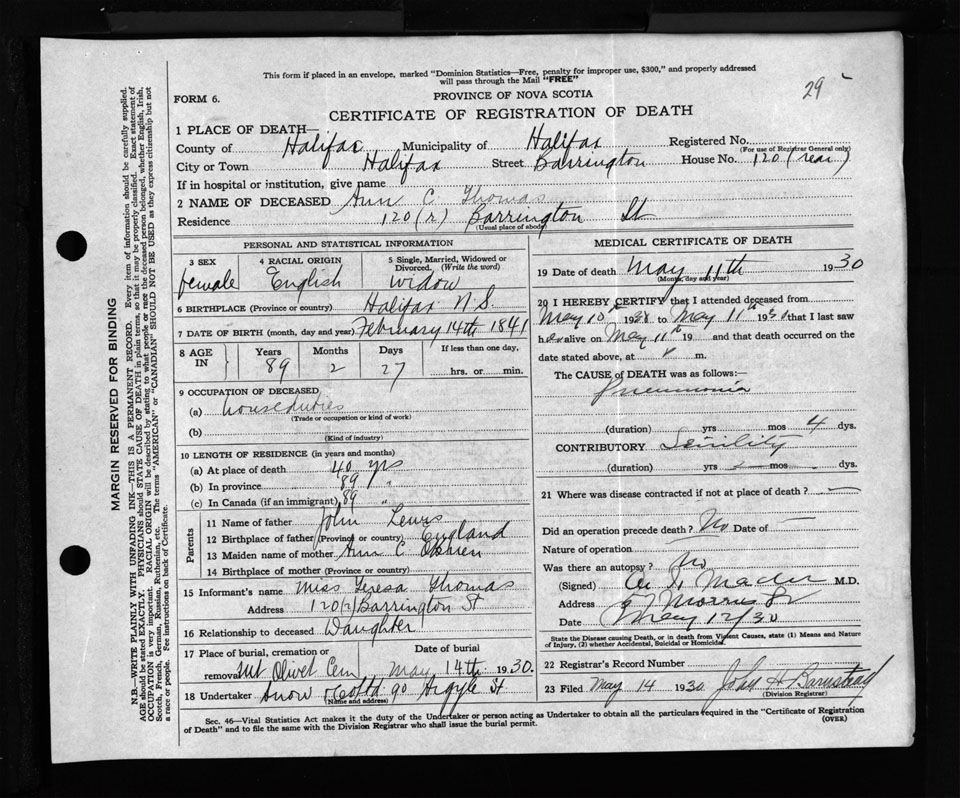 This form if placed in an envelope, marked "Dominion Statistics—Free, penalty for improper use, $300," and properly addressed
will pass through the Mail "FREE"
29
FORM 6.
PROVINCE OF NOVA SCOTIA
CERTIFICATE OF REGISTRATION OF DEATH
1 PLACE OF DEATH—
County of Halifax Municipality of Halifax Registered No.
(For use of Registrar General only)
City or Town Halifax Street Barrington House No. 120 (rear)
If in hospital or institution, give name
2 NAME OF DECEASED Ann C. Thomas
Residence 120 (r) Barrington St
(Usual place of abode)
PERSONAL AND STATISTICAL INFORMATION
3 SEX
female
4 RACIAL ORIGIN
English
5 Single, Married, Widowed or
Divorced. (Write the word)
widow
6 BIRTHPLACE (Province or country) Halifax N.S.
7 DATE OF BIRTH (month, day and year) February 14th 1841
8 AGE IN
Years Months Days If less than one day,
89 2 27 hrs. or min.
9 OCCUPATION OF DECEASED
(a) houseduties
(Trade or occupation or kind of work)
(b)
(Kind of industry)
10 LENGTH OF RESIDENCE (in years and months)
(a) At place of death 40 yrs
(b) In province 89 "
(c) In Canada (if an immigrant) 89 "
Parents
11 Name of father John Lewis
12 Birthplace of father (Province or country) England
13 Maiden name of mother Ann C OBrien
14 Birthplace of mother (Province or country)
15 Informant's name Miss Teresa Thomas
Address 120(r) Barrington St
16 Relationship to deceased Daughter
17 Place of burial, cremation or removal Mt Olivet Cem
Date of burial
May 14th 1930.
18 Undertaker Snow 90 Argyle St
(Name and address)
MEDICAL CERTIFICATE OF DEATH
19 Date of death May 11th 1930
(Month, day and year)
20 I HEREBY CERTIFY that I attended deceased from
May 10th 1930 to May 11th 1930 that I last saw
her alive on May 11th 19 and that death occurred on the
date stated above, at m.
The CAUSE OF DEATH was as follows:—
Pneumonia
(duration) yrs mos 4 dys.
CONTRIBUTORY Senility
(duration) yrs mos dys.
21 Where was disease contracted if not at place of death? —
Did an operation precede death? No Date of —
Nature of operation
Was there an autopsy? No
(Signed) Mader M.D.
Address Morris St
Date May 12/30
State the Disease causing Death, or in death from Violent Causes, state (1) Means and Nature
of Injury, (2) whether Accidental, Suicidal or Homicidal.
22 Registrar's Record Number
23 Filed May 14 1930 John H Barnstead
(Division Registrar)
Sec. 46—Vital Statistics Act makes it the duty of the Undertaker or person acting as Undertaker to obtain all the particulars required in the "Certificate of Registration
of Death" and to file the same with the Division Registrar who shall issue the burial permit.
(OVER)
MARGIN RESERVED FOR BINDING
N.B.—WRITE PLAINLY WITH UNFADING INK—THIS IS A PERMANENT RECORD. Every item of information should be carefully supplied.
AGE should be stated EXACTLY. PHYSICIANS should STATE CAUSE OF DEATH in plain terms, so that it may be properly classified. Exact statement of
OCCUPATION is very important. RACIAL ORIGIN will be described by stating to what people or race the deceased person belonged, whether English, Irish,
Scotch, French, German, Russian, Ruthenian, etc. The terms "AMERICAN" or "CANADIAN" SHOULD NOT BE USED as they express citizenship but not
a race or people. See instructions on back of Certificate.